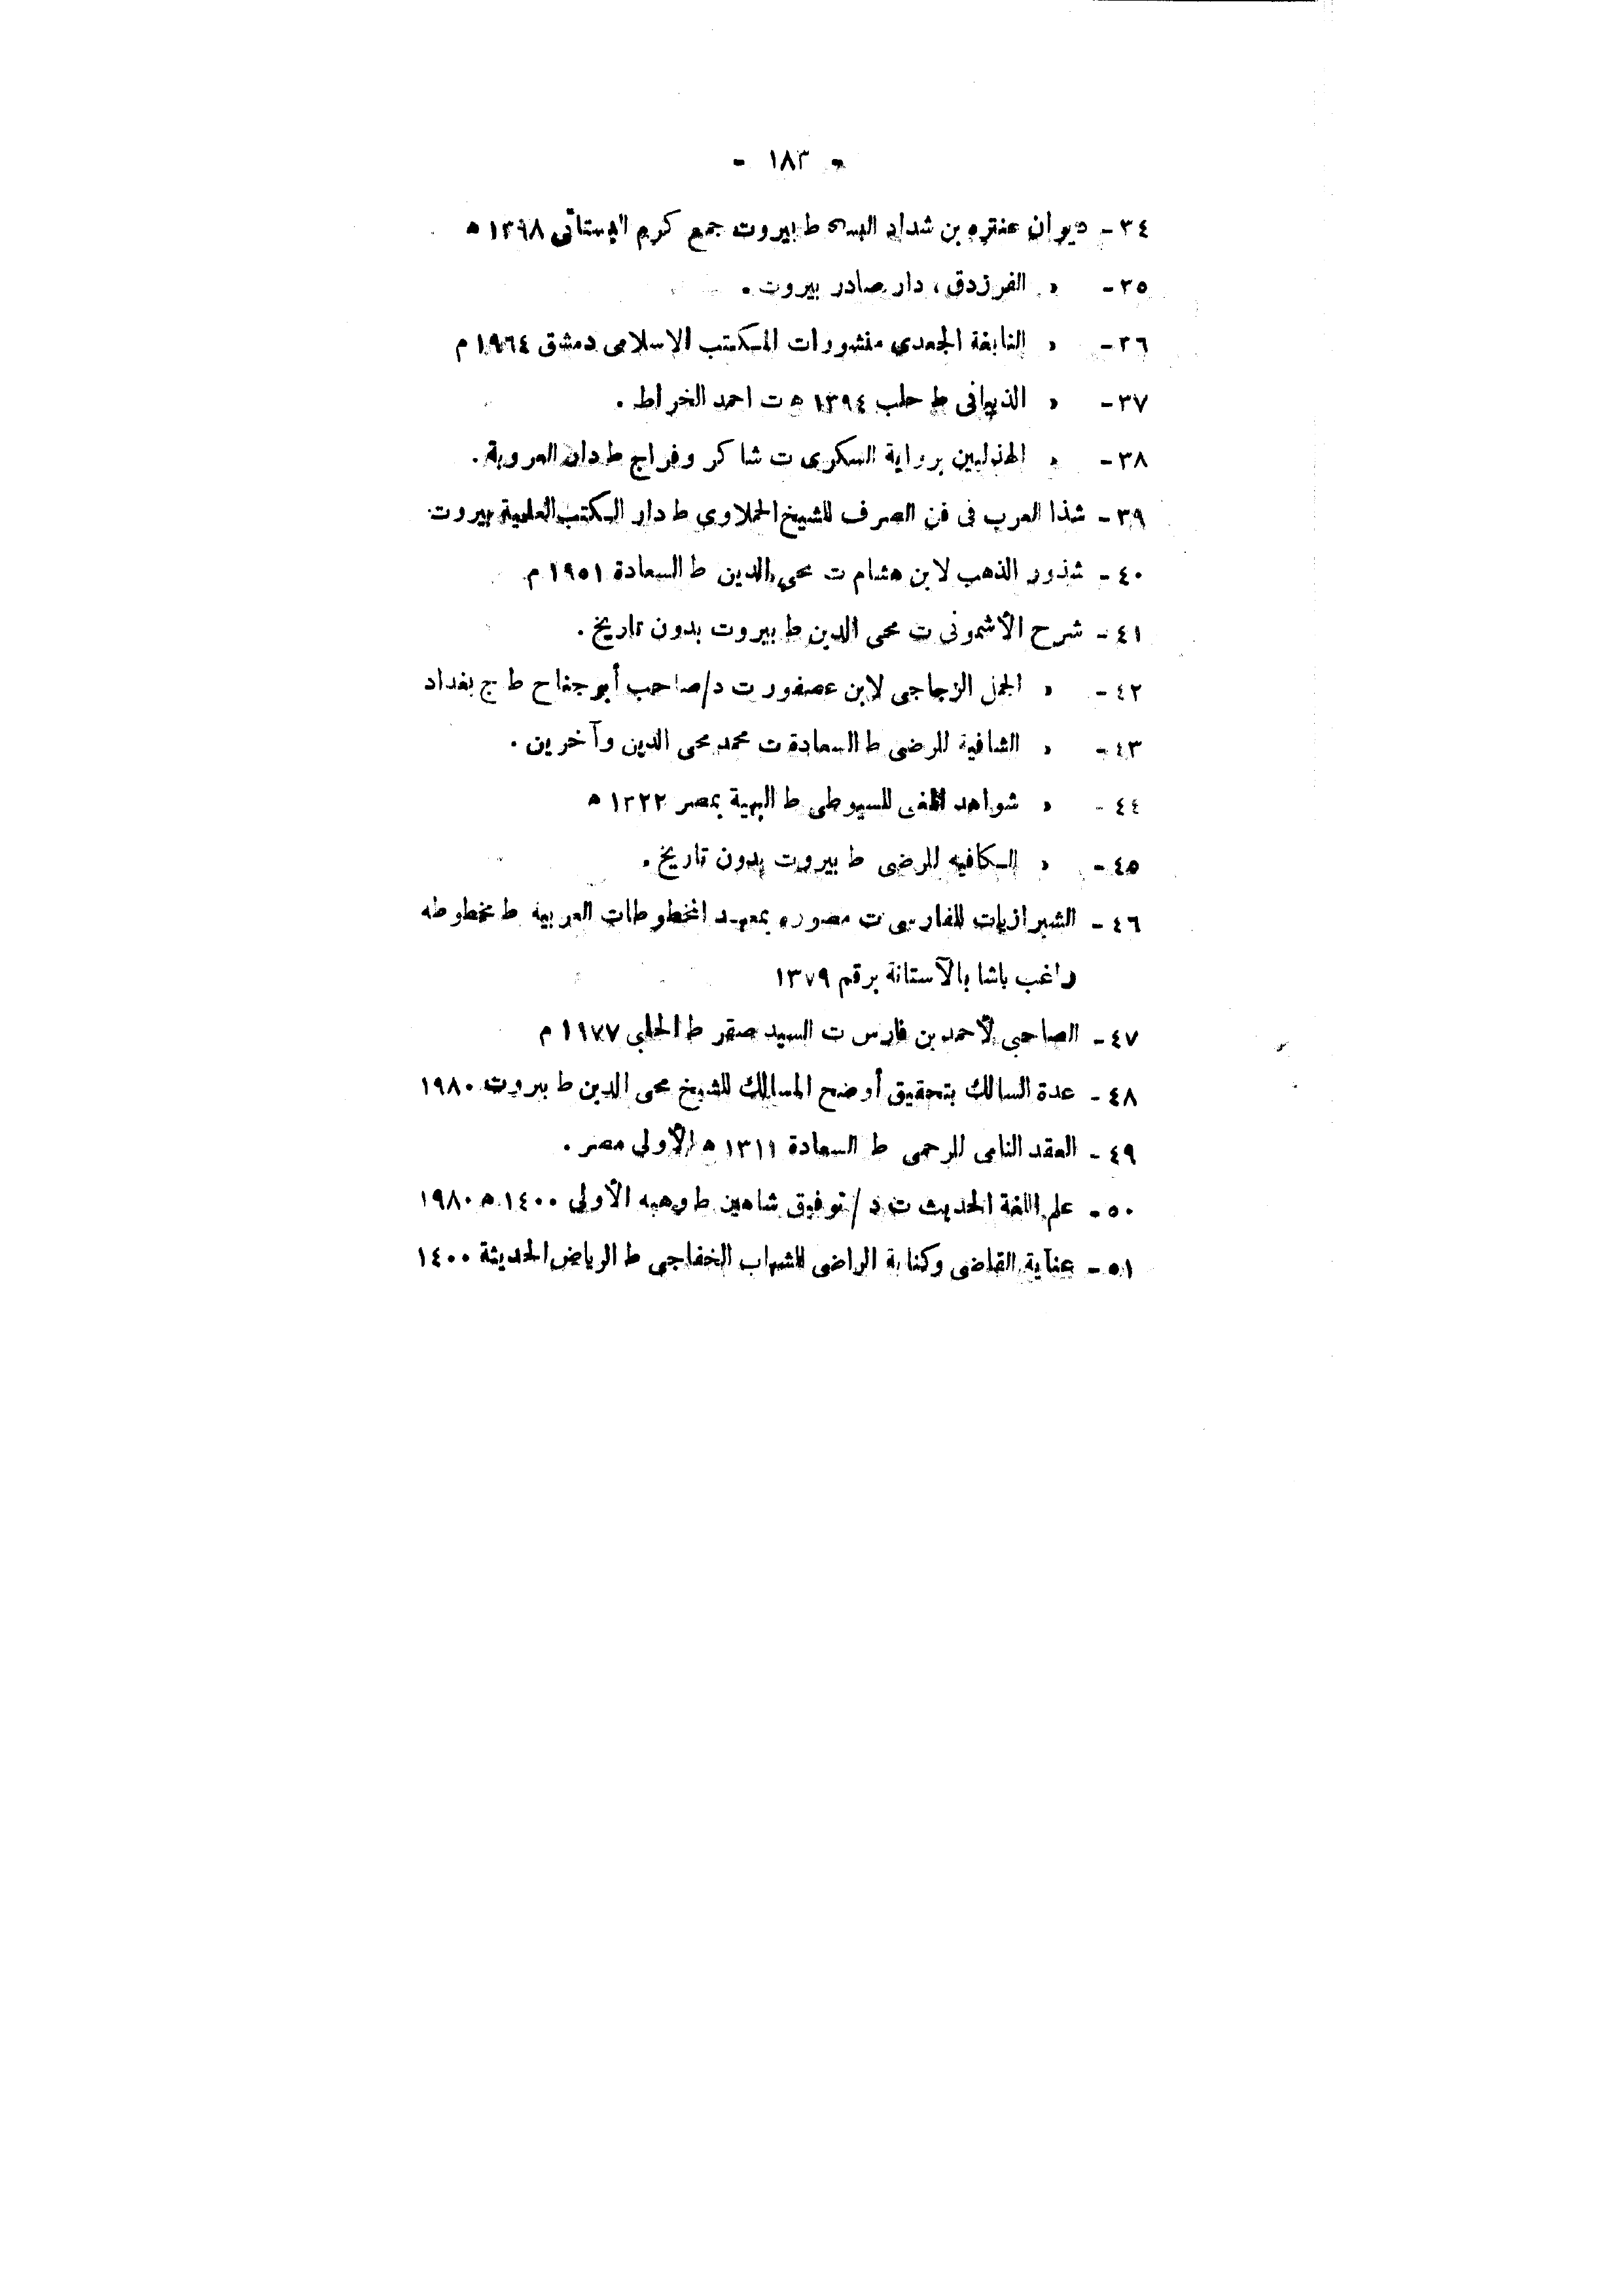 - ١٨٣ -
٣٤ - ديوان عنتره بن شداد ط بيروت جمع كرم البستانى ١٣٩٨ ه
٣٥ - » الفرزدق ، دار صادر بيروت .
٣٦ - » النابغة الجعدى منشورات المكتب الاسلامى دمشق ١٩٦٤ م
٣٧ - » الذبيانى ط حلب ١٣٩٤ ه ت احمد الخراط .
٣٨ - » الهذليين برواية السكرى ت شاكر وفراج ط دار العروبة .
٣٩ - شذا العرب فى فن الصرف للشيخ الحملاوى ط دار الكتب العلمية بيروت
٤٠ - شذور الذهب لابن هشام ت محي الدين ط السعادة ١٩٥١ م
٤١ - شرح الأشمونى ت محى الدين ط بيروت بدون تاريخ .
٤٢ - » الجمل الزجاجى لابن عصفور ت د/صاحب أبو جناح ط ج بغداد
٤٣ - » الشافية للرضى ط السعادة ت محمد محى الدين وآخرين .
٤٤ - » شواهد المغنى للسيوطى ط البهية بمصر ١٣٢٢ ه
٤٥ - » الكافيه للرضى ط بيروت بدون تاريخ .
٤٦ - الشيرازيات للفارسى ت مصوره بمعهد المخطوطات العربيه ط مخطوطه
راغب باشا بالآستانة برقم ١٣٧٩
٤٧ - الصاحبى لأحمد بن فارس ت السيد صقر ط الحلبى ١٩٧٧ م
٤٨ - عدة السالك بتحقيق أوضح المسالك للشيخ محى الدين ط بيروت ١٩٨٠
٤٩ - العقد النامى للرحمى ط السعادة ١٣١١ ه الأولى مصر .
٥٠ - علم اللغة الحديث ت د / توفيق شاهين ط وهبه الأولى ١٤٠٠ ه ١٩٨٠
٥١ - عناية القاضى وكناية الراضى للشهاب الخفاجى ط الرياض الحديثة ١٤٠٠